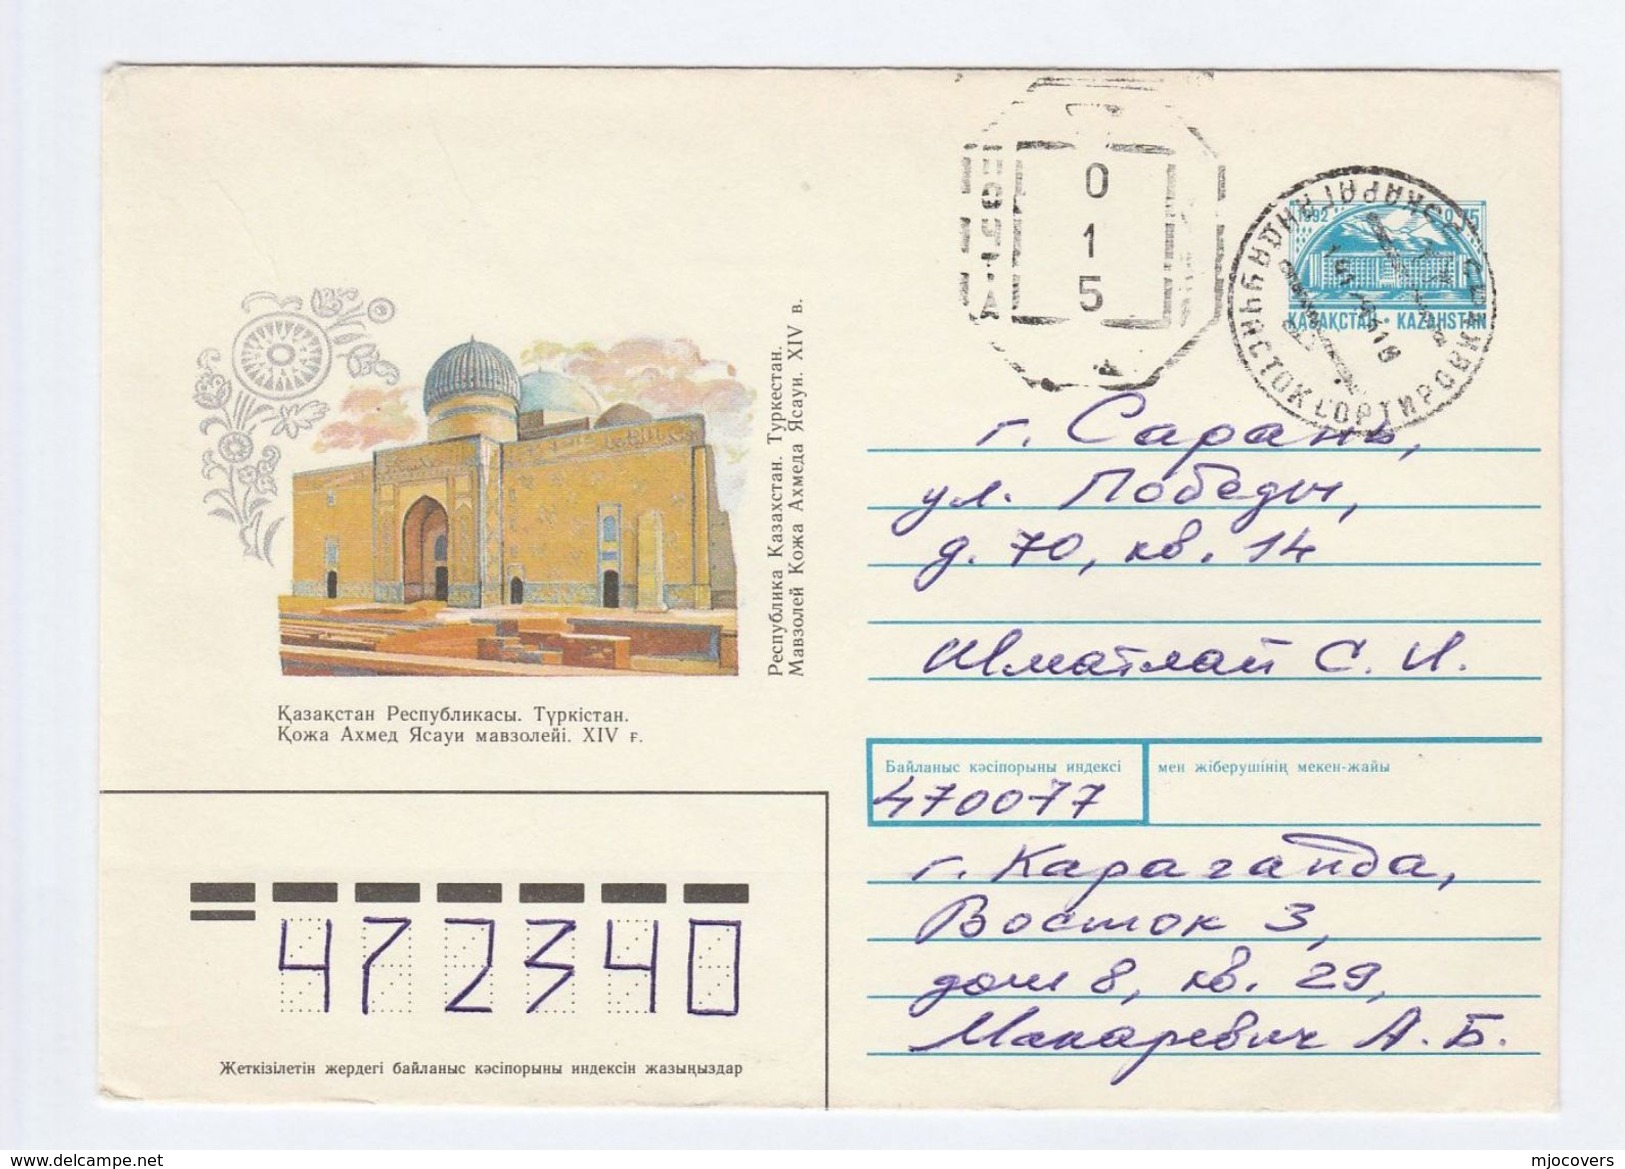 Республика Казахстан. Туркестан.
Мавзолей Кожа Ахмеда Ясауи. XIV в.
Қазақстан Республикасы. Түркістан.
Қожа Ахмед Ясауи мавзолейі. XIV ғ.
ПОЧТА
0
1
5
1992
0.15
ҚАЗАҚСТАН • KAZAHSTAN
СОРТИРОВК
г. Сарань,
ул. Победы,
д. 70, кв. 14
С. И.
Байланыс кәсіпорыны индексі
мен жіберушінің мекен-жайы
470077
г. Караганда,
Восток 3,
дом 8, кв. 29,
Макаревич А. Б.
472340
Жеткізілетін жердегі байланыс кәсіпорыны индексін жазыңыздар
mjocovers